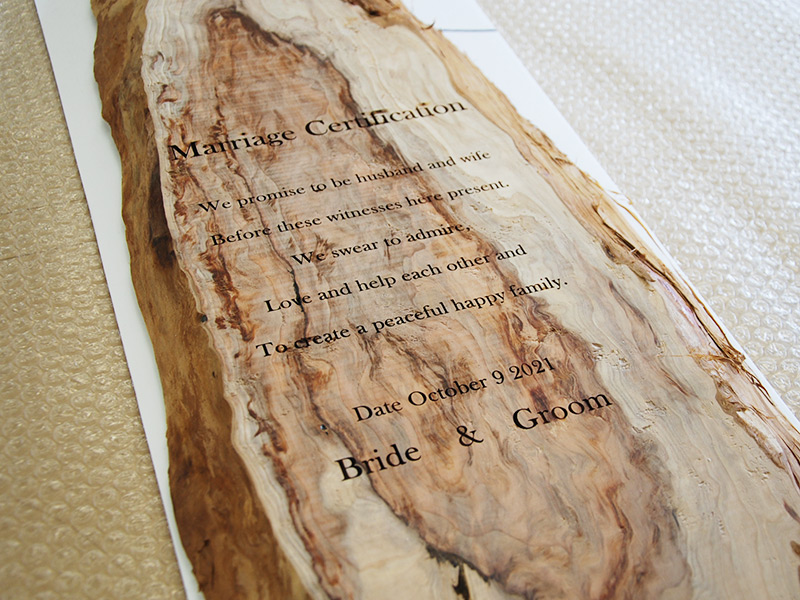 Marriage Certification
We promise to be husband and wife
Before these witnesses here present.
We swear to admire,
Love and help each other and
To create a peaceful happy family.
Date October 9 2021
Bride & Groom